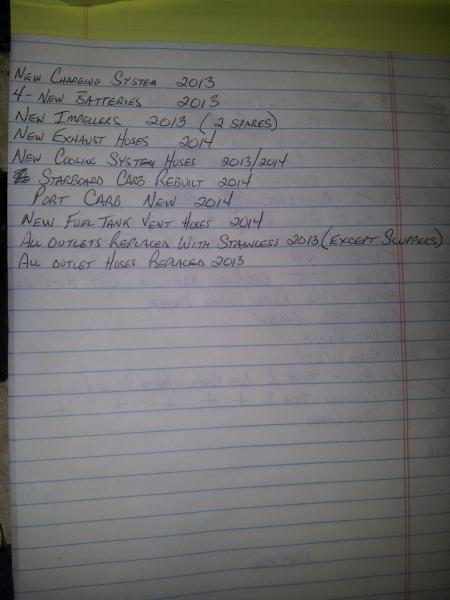 New Charging System 2013
4-New Batteries 2013
New Impellers 2013 (2 spares)
New Exhaust Hoses 2014
New Cooling System Hoses 2013/2014
Starboard Carb Rebuilt 2014
Port Carb New 2014
New Fuel Tank Vent Hoses 2014
All outlets Replaced With Stainless 2013 (Except Scuppers)
All outlet Hoses Replaced 2013